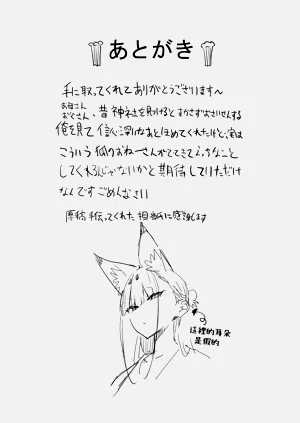 あとがき
手に取ってくれてありがとうございます〜
お母さん
お父さん、昔神社を見つけるとすかさずおさいせんする
俺を見て信心深いなあとほめてくれたけど、実は
こういう狐のおねーさんがでてきてえっちなこと
してくれるんじゃないかと期待していただけ
なんです ごめんなさい
原稿手伝ってくれた担当に感謝します
這裡的耳朵
是假的